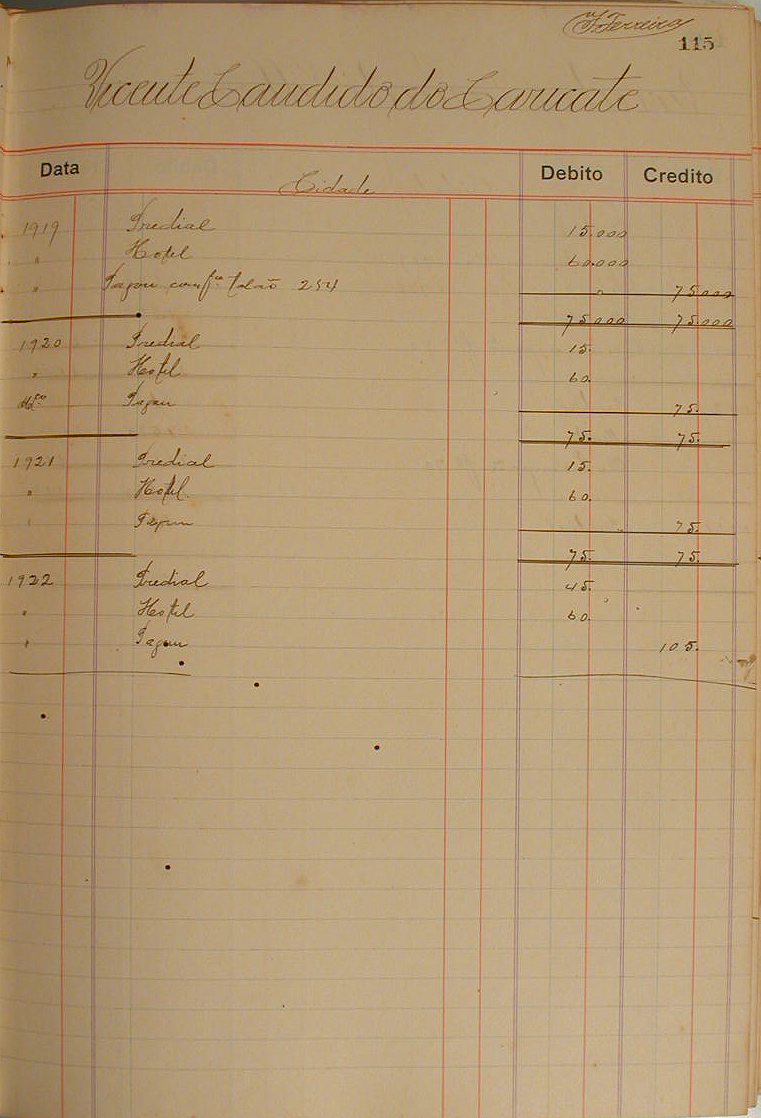 J. Ferreira
115
Vicente Candido do Caricate
Data Debito Credito
Cidade
1919 Predial 15.000
" Hotel 60.000
" Pagou conf.e talão 254 " 75.000
75.000 75.000
1920 Predial 15.
" Hotel 60.
Pagou 75.
75. 75.
1921 Predial 15.
" Hotel 60.
" Pagou 75.
75. 75.
1922 Predial 45.
" Hotel 60.
" Pagou 105.